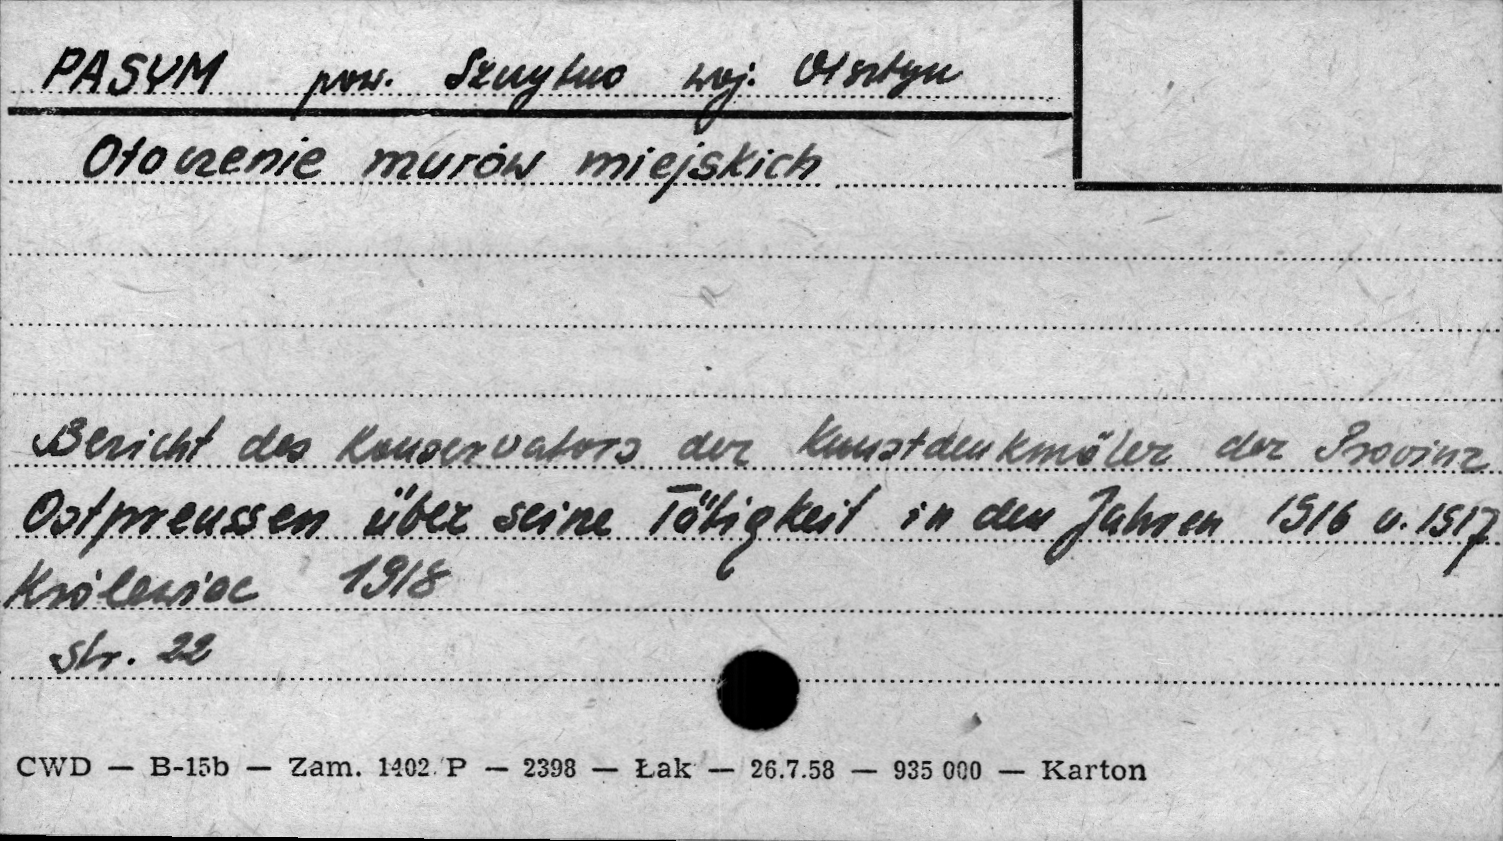 PASYM pow. Szczytno woj. Olsztyn
Otoczenie murów miejskich
Bericht des Konservators der Kunstdenkmäler der Provinz
Ostpreussen über seine Tätigkeit in den Jahren 1916 u. 1917
Królewiec 1918
str. 22
CWD — B-15b — Zam. 1402 P — 2398 — Łak — 26.7.58 — 935 000 — Karton